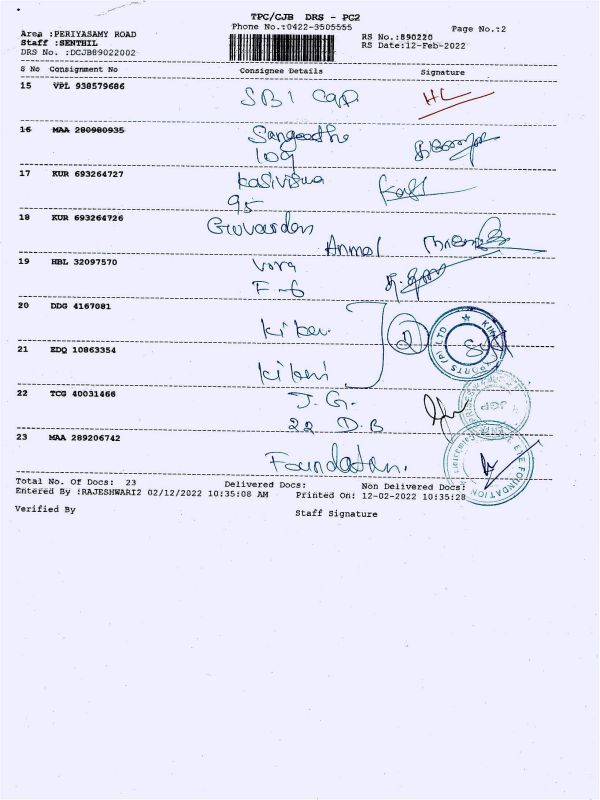 TPC/CJB DRS - PC2
Phone No.:0422-3505555
Page No.:2
Area :PERIYASAMY ROAD
Staff :SENTHIL
DRS No. :DCJB89022002
RS No.:890220
RS Date:12-Feb-2022
S No Consignment No Consignee Details Signature
15 VPL 938579686
SBI Cap HL
16 MAA 280980935
109
17 KUR 693264727
95
18 KUR 693264726
Anmol
19 HBL 32097570
Vora
F-6
20 DDG 4167081
2
21 EDQ 10863354
22 TCG 40031466
J.G.
22 D.B
JGP
23 MAA 289206742
Foundation.
FOUNDATION
Total No. Of Docs: 23 Delivered Docs: Non Delivered Docs:
Entered By :RAJESHWARI2 02/12/2022 10:35:08 AM Printed On: 12-02-2022 10:35:28
Verified By Staff Signature